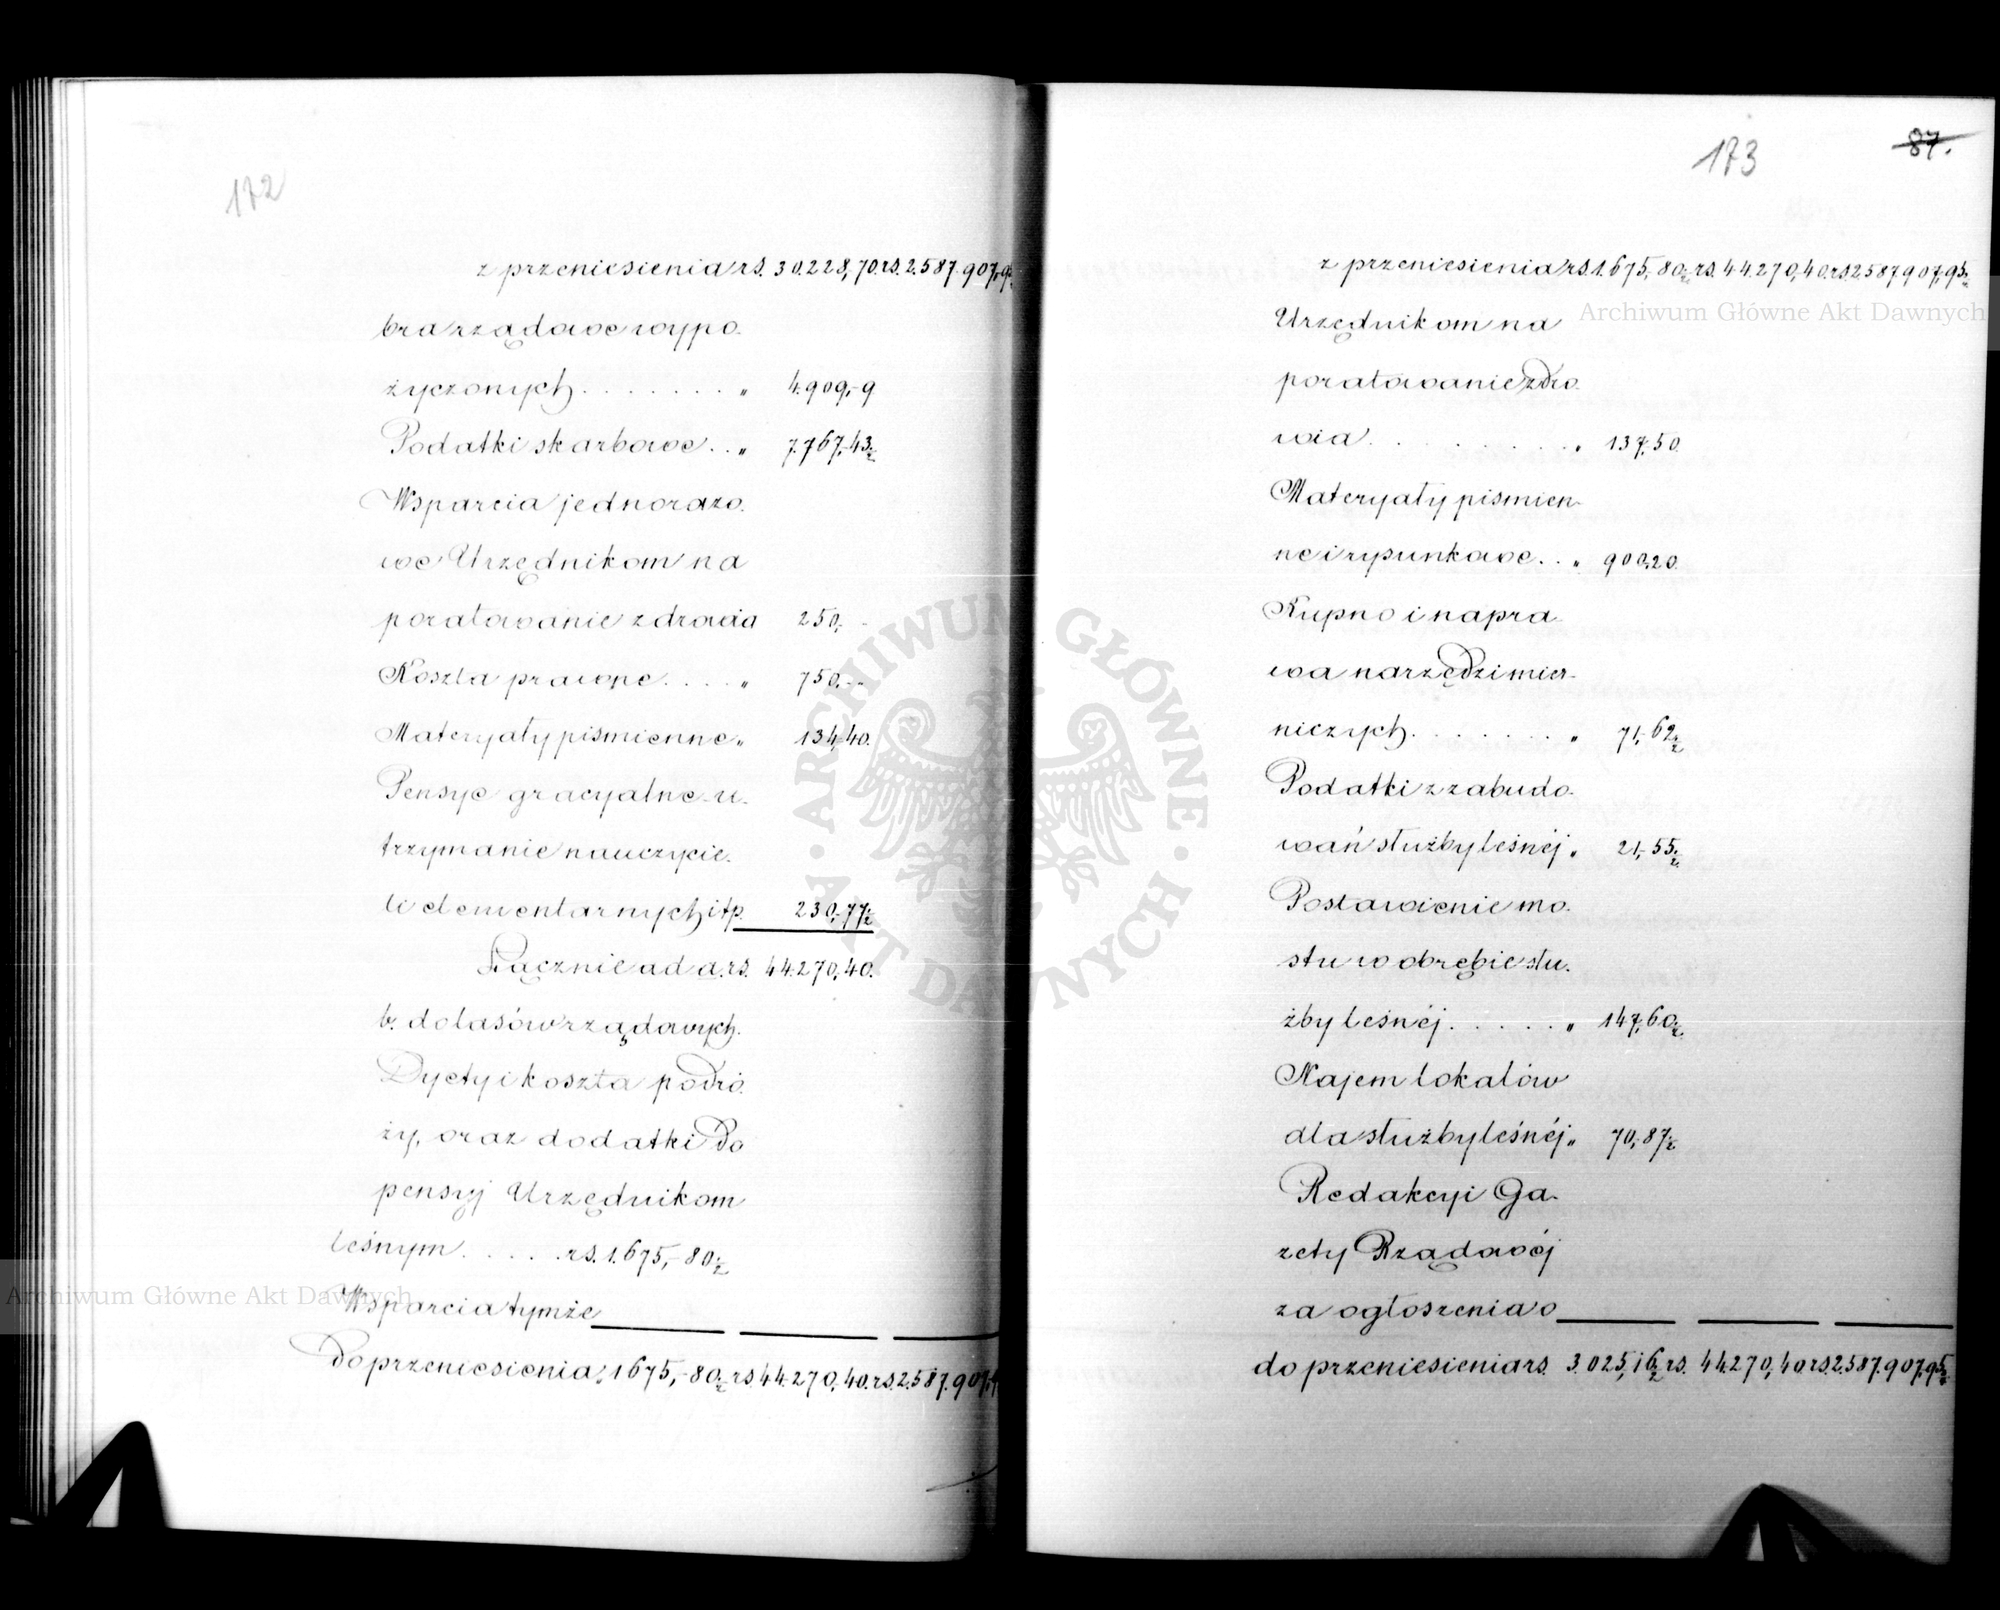 172
z przeniesienia rs. 30.228,70. rs. 2.587.907,9
bra rządowe wypo.
życzonych . . . . . . . „ 4.909,-9
Podatki skarbowe . . „ 7.767,-43½
Wsparcia jednorazo.
we Urzędnikom na
poratowanie zdrowia 250,-
Koszta prawne . . . . „ 750,--
Materyały piśmienne „ 134,40.
Pensye gracyalne u.
trzymanie nauczycie.
li elementarnych itp. 230,-77½
Łącznie ad a. rs. 44.270,40.
b. do lasów rządowych.
Dyety i koszta podró.
ży, oraz dodatki do
pensyj Urzędnikom
leśnym . . . . . rs. 1.675,-80½
Wsparcia tymże
Do przeniesienia „ 1675,-80½ rs 44.270,40. rs. 2.587.907,9
173
87.
z przeniesienia rs. 1.675,-80½ rs. 44.270,40. rs 2587.907,95½
Urzędnikom na
poratowanie zdro.
wia . . . . . . . . „ 137,50.
Materyały piśmien-
ne i rysunkowe . . „ 900,20.
Kupno i napra
wa narzędzi mier-
niczych . . . . . . . „ 71,-62½
Podatki z zabudo.
wań służby leśnéj „ 21,-55½
Postawienie mo.
stu w obrębie słu.
żby leśnéj . . . . . „ 147,60½
Najem lokalów
dla służby leśnéj „ 70,-87½
Redakcyi Ga-
zety Rządowéj
za ogłoszenia o
do przeniesienia rs. 3.025,16½ rs. 44.270,40 rs 2.587.907,95½
Archiwum Główne Akt Dawnych
Archiwum Główne Akt Dawnych
ARCHIWUM GŁÓWNE · AKT DAWNYCH ·